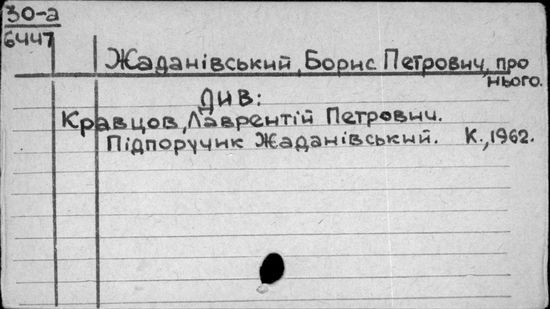 30-а
6447
Жаданівський, Борис Петрович, про
нього.
Див:
Кравцов, Лаврентій Петрович.
Підпоручик Жаданівський. К., 1962.